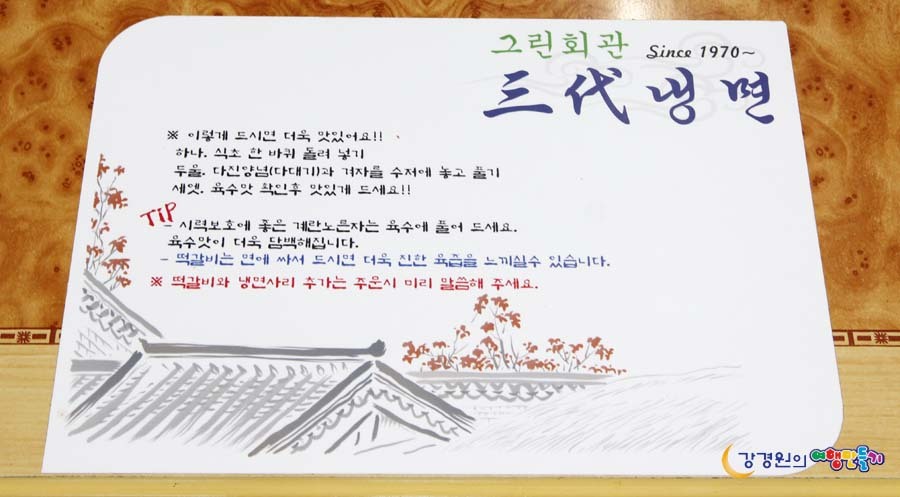 그린회관 Since 1970~
三代냉면
※ 이렇게 드시면 더욱 맛있어요!!
하나. 식초 한 바퀴 돌려 넣기
두울. 다진양념(다대기)과 겨자를 수저에 놓고 풀기
세엣. 육수맛 확인후 맛있게 드세요!!
TIP
- 시력보호에 좋은 계란노른자는 육수에 풀어 드세요.
육수맛이 더욱 담백해집니다.
- 떡갈비는 면에 싸서 드시면 더욱 진한 육즙을 느끼실수 있습니다.
※ 떡갈비와 냉면사리 추가는 주문시 미리 말씀해 주세요.
강경원의 여행만들기